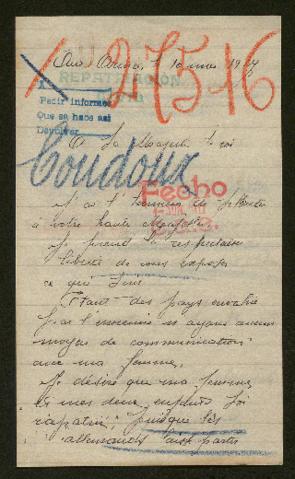 10 mars 1917
27516
REPATRIACIÓN
Pedir informes
Que se haga así
Devolver
A Sa Majesté le roi
Coudoux
Fecho
à votre haute Majesté
Je prend la respectueuse
liberté de vous exposer
ce qui suit
Etant des pays envahis
par l'ennemie et ayant aucun
moyens de communication
avec ma femme,
Je désire que ma femme
et mes deux enfants soi
rapatrié; puisque les
allemands